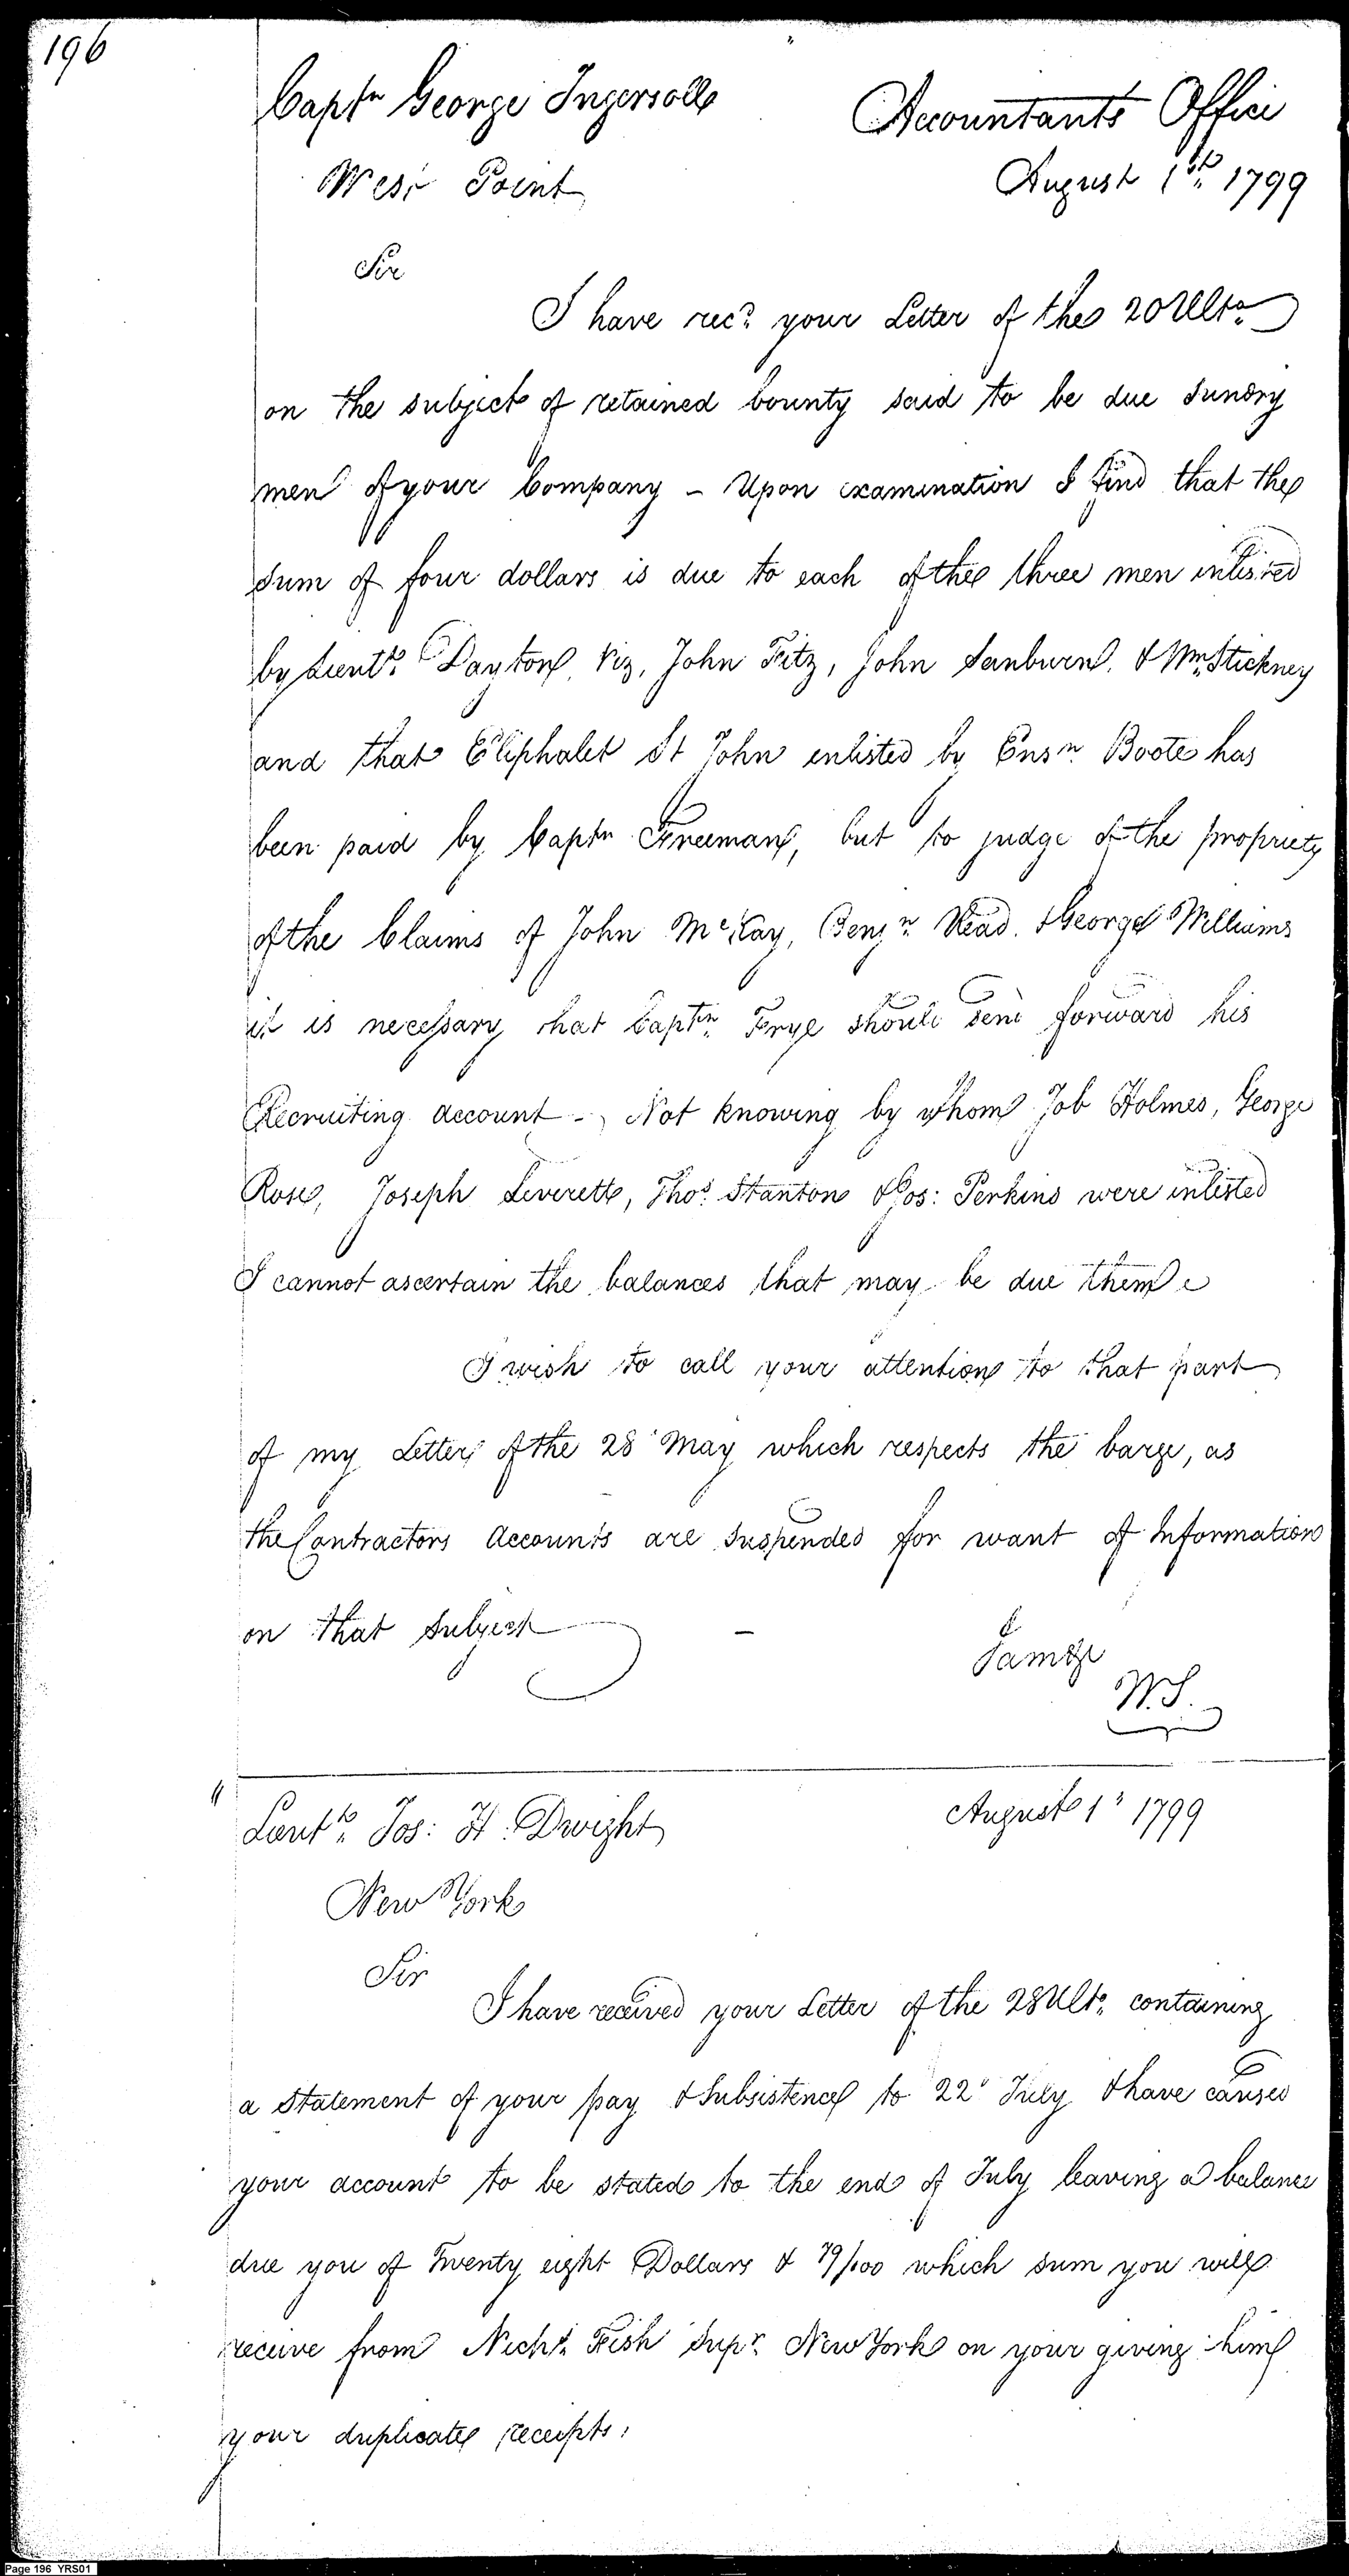 196
Captn George Ingersoll
Accountants Office
West Point
August 1st 1799
Sir
I have recd. your Letter of the 20 Ulto.
on the subject of retained bounty said to be due sundry
men of your Company - Upon examination I find that the
sum of four dollars is due to each of the three men inlisted
by Lieutt. Dayton Viz, John Fitz, John Sanburn. & Wm. Stickney
and that Eliphalet St John enlisted by Ensn. Boote has
been paid by Captn Freeman, but to judge of the propriety
of the Claims of John McKay, Benjn. Read. & George Williams
it is necessary that Captn. Frye should send forward his
Recruiting account - Not knowing by whom Job Holmes, George
Rose, Joseph Leverett, Thos. Stanton & Jos: Perkins were inlisted
I cannot ascertain the balances that may be due them
I wish to call your attention to that part
of my Letter of the 28 May which respects the barge, as
the Contractors Accounts are suspended for want of Information
on that subject -
I am &c
W.S.
Lieutt. Jos: H. Dwight
August 1st 1799
New York
Sir
I have received your Letter of the 28 Ulto. containing
a Statement of your pay & Subsistence to 22d July & have caused
your account to be stated to the end of July leaving a balance
due you of Twenty eight Dollars & 79/100 which sum you will
receive from Nichs. Fish Supr. New York on your giving him
your duplicate receipts.
Page 196 YRS01